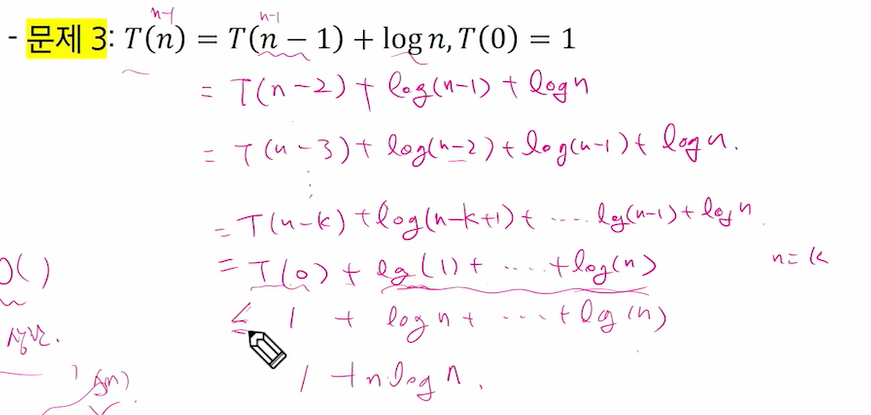 n-1 n-1
- 문제 3: T(n) = T(n − 1) + log n, T(0) = 1
= T(n-2) + log(n-1) + log n
= T(n-3) + log(n-2) + log(n-1) + log n.
⋮
= T(n-k) + log(n-k+1) + ···· lg(n-1) + log n
= T(0) + lg(1) + ···· + log(n) n = k
O( )
≤ 1 + log n + ···· + log(n)
1 + n log n.